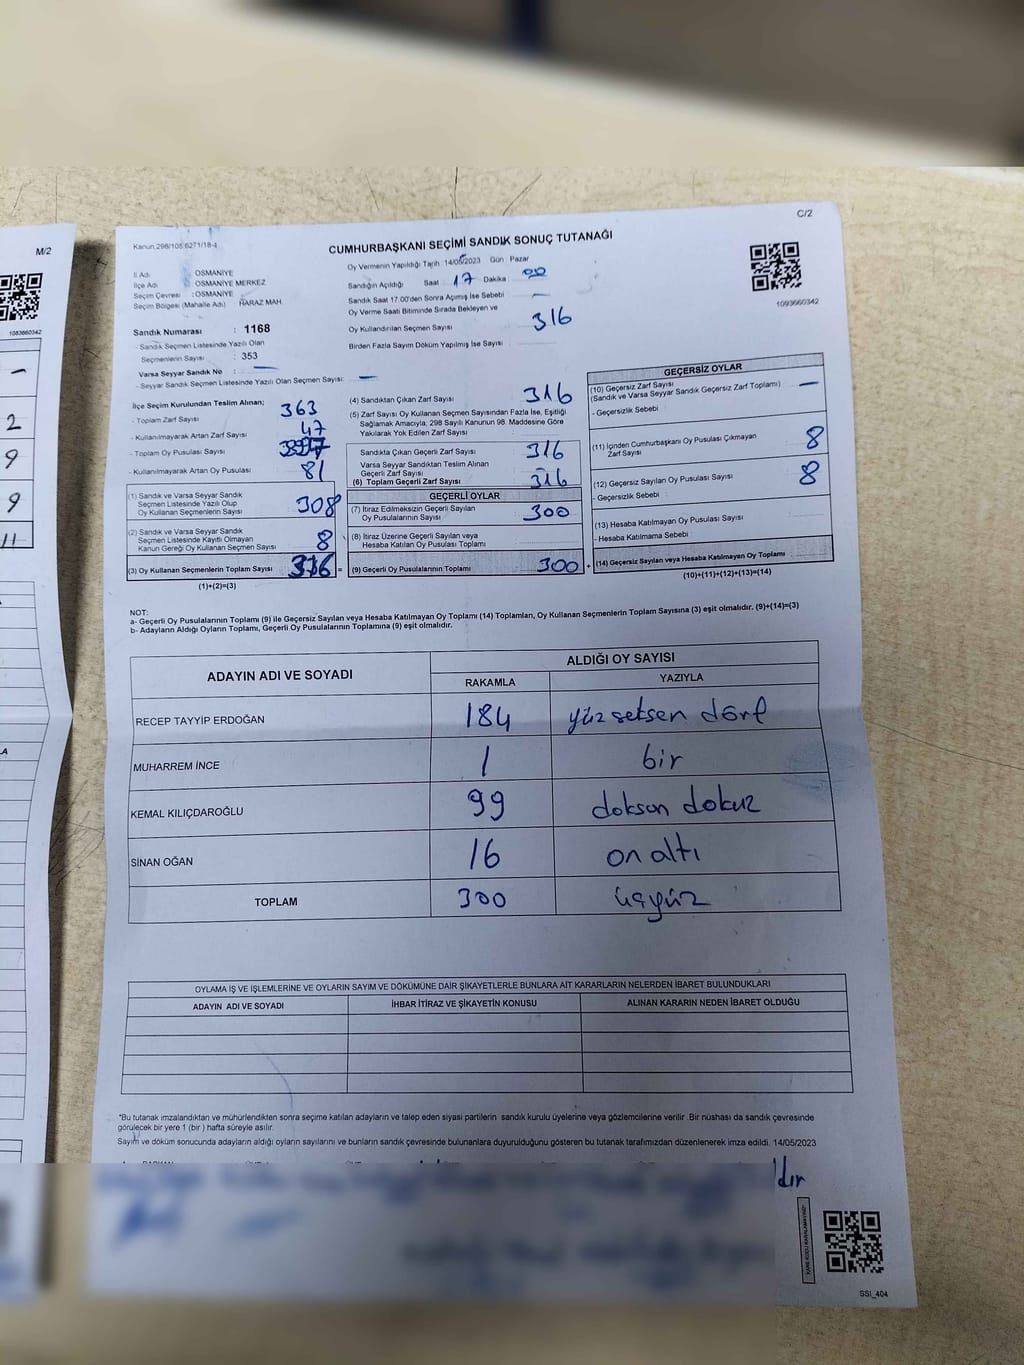 M/2
1083660342
2
9
9
11
C/2
Kanun 298/105 6271/18-4
CUMHURBAŞKANI SEÇİMİ SANDIK SONUÇ TUTANAĞI
1093660342
İl Adı : OSMANİYE
İlçe Adı : OSMANİYE MERKEZ
Seçim Çevresi : OSMANİYE
Seçim Bölgesi (Mahalle Adı) : HARAZ MAH.
Sandık Numarası : 1168
- Sandık Seçmen Listesinde Yazılı Olan
Seçmenlerin Sayısı : 353
Varsa Seyyar Sandık No —
- Seyyar Sandık Seçmen Listesinde Yazılı Olan Seçmen Sayısı: —
Oy Vermenin Yapıldığı Tarih :14/05/2023 Gün Pazar
Sandığın Açıldığı Saat 17 Dakika 00
Sandık Saat 17.00'den Sonra Açımış İse Sebebi —
Oy Verme Saati Bitiminde Sırada Bekleyen ve
Oy Kullandırılan Seçmen Sayısı 316
Birden Fazla Sayım Döküm Yapılmış İse Sayısı
İlçe Seçim Kurulundan Teslim Alınan;
- Toplam Zarf Sayısı 363
- Kullanılmayarak Artan Zarf Sayısı 47
- Toplam Oy Pusulası Sayısı
- Kullanılmayarak Artan Oy Pusulası 81
(1) Sandık ve Varsa Seyyar Sandık
Seçmen Listesinde Yazılı Olup
Oy Kullanan Seçmenlerin Sayısı 308
(2) Sandık ve Varsa Seyyar Sandık
Seçmen Listesinde Kayıtlı Olmayan
Kanun Gereği Oy Kullanan Seçmen Sayısı 8
(3) Oy Kullanan Seçmenlerin Toplam Sayısı 316 =
(1)+(2)=(3)
(4) Sandıktan Çıkan Zarf Sayısı 316
(5) Zarf Sayısı Oy Kullanan Seçmen Sayısından Fazla İse, Eşitliği
Sağlamak Amacıyla, 298 Sayılı Kanunun 98. Maddesine Göre
Yakılarak Yok Edilen Zarf Sayısı
Sandıkta Çıkan Geçerli Zarf Sayısı 316
Varsa Seyyar Sandıktan Teslim Alınan
Geçerli Zarf Sayısı
(6) Toplam Geçerli Zarf Sayısı 316
GEÇERLİ OYLAR
(7) İtiraz Edilmeksizin Geçerli Sayılan
Oy Pusulalarının Sayısı 300
(8) İtiraz Üzerine Geçerli Sayılan veya
Hesaba Katılan Oy Pusulası Toplamı
(9) Geçerli Oy Pusulalarının Toplamı 300 +
GEÇERSİZ OYLAR
(10) Geçersiz Zarf Sayısı
(Sandık ve Varsa Seyyar Sandık Geçersiz Zarf Toplamı) —
- Geçersizlik Sebebi
(11) İçinden Cumhurbaşkanı Oy Pusulası Çıkmayan
Zarf Sayısı 8
(12) Geçersiz Sayılan Oy Pusulası Sayısı 8
- Geçersizlik Sebebi
(13) Hesaba Katılmayan Oy Pusulası Sayısı
- Hesaba Katılmama Sebebi
(14) Geçersiz Sayılan veya Hesaba Katılmayan Oy Toplamı
(10)+(11)+(12)+(13)=(14)
NOT:
a- Geçerli Oy Pusulalarının Toplamı (9) ile Geçersiz Sayılan veya Hesaba Katılmayan Oy Toplamı (14) Toplamları, Oy Kullanan Seçmenlerin Toplam Sayısına (3) eşit olmalıdır. (9)+(14)=(3)
b- Adayların Aldığı Oyların Toplamı, Geçerli Oy Pusulalarının Toplamına (9) eşit olmalıdır.
ADAYIN ADI VE SOYADI ALDIĞI OY SAYISI
RAKAMLA YAZIYLA
RECEP TAYYİP ERDOĞAN 184 yüz seksen dört
MUHARREM İNCE 1 bir
KEMAL KILIÇDAROĞLU 99 doksan dokuz
SİNAN OĞAN 16 on altı
TOPLAM 300 üçyüz
OYLAMA İŞ VE İŞLEMLERİNE VE OYLARIN SAYIM VE DÖKÜMÜNE DAİR ŞİKAYETLERLE BUNLARA AİT KARARLARIN NELERDEN İBARET BULUNDUKLARI
ADAYIN ADI VE SOYADI İHBAR İTİRAZ VE ŞİKAYETİN KONUSU ALINAN KARARIN NEDEN İBARET OLDUĞU
*Bu tutanak imzalandıktan ve mühürlendikten sonra seçime katılan adayların ve talep eden siyasi partilerin sandık kurulu üyelerine veya gözlemcilerine verilir. Bir nüshası da sandık çevresinde
görülecek bir yere 1 (bir ) hafta süreyle asılır.
Sayım ve döküm sonucunda adayların aldığı oyların sayılarını ve bunların sandık çevresinde bulunanlara duyurulduğunu gösteren bu tutanak tarafımızdan düzenlenerek imza edildi. 14/05/2023
SSI_404